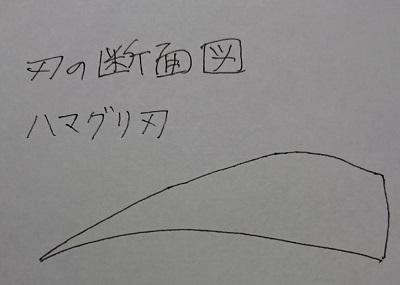 刃の断面図
ハマグリ刃